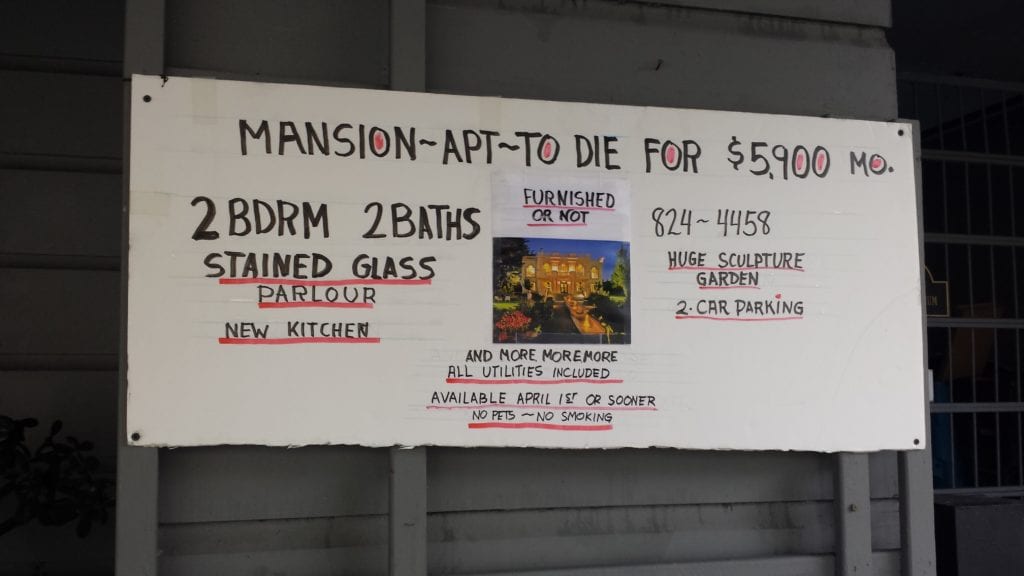 MANSION~APT~TO DIE FOR $5,900 MO.
2 BDRM 2 BATHS
STAINED GLASS
PARLOUR
NEW KITCHEN
FURNISHED
OR NOT
824~4458
HUGE SCULPTURE
GARDEN
2-CAR PARKING
AND MORE, MOREMORE
ALL UTILITIES INCLUDED
AVAILABLE APRIL 1ST OR SOONER
NO PETS ~ NO SMOKING